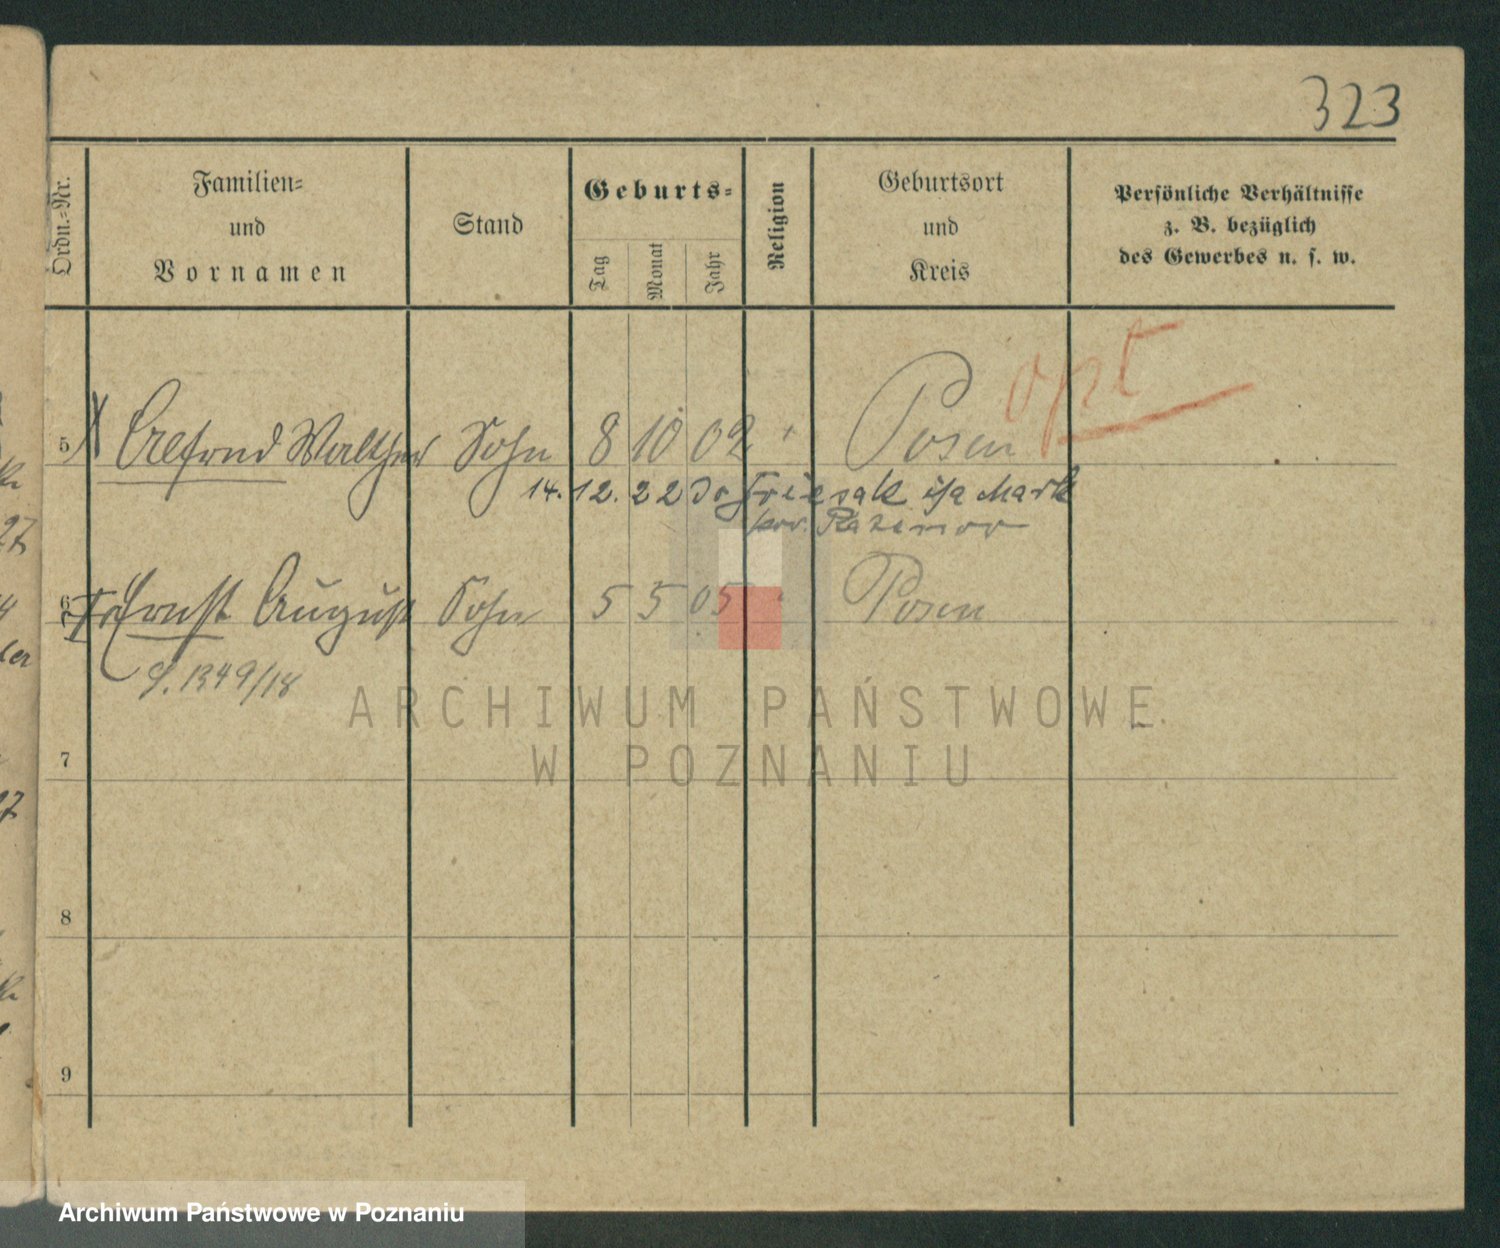 323
Ordn.=Nr.
Familien=
und
Vornamen
Stand
Geburts=
Tag
Monat
Jahr
Religion
Geburtsort
und
Kreis
Persönliche Verhältnisse
z. B. bezüglich
des Gewerbes u. s. w.
opt
5 Alfred Walther Sohn 8 10 02 Posen
14.12.22 Friesak i/a Mark
6 Ernst August Sohn 5 5 05 Posen
1349/18
7
8
9
ARCHIWUM PAŃSTWOWE
W POZNANIU
Archiwum Państwowe w Poznaniu